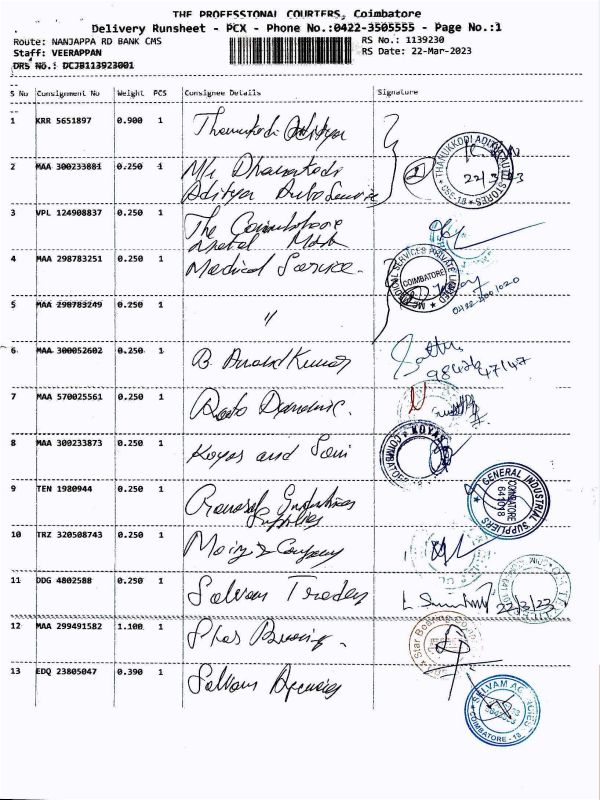 THE PROFESSTONAL COURTERS, Coimbatore
Delivery Runsheet - PCX - Phone No.:0422-3505555 - Page No.:1
Route: NANJAPPA RD BANK CMS
RS No.: 1139230
Staff: VEERAPPAN
RS Date: 22-Mar-2023
DRS No.: DCJB113923001
S No Consignment No Weight PCS Consignee Details Signature
1 KRR 5651897 0.900 1
THANUKKODI
22/3/23
2 MAA 300233881 0.250 1 Mr Dhanakodi
Aditya Auto Service
3 VPL 124908837 0.250 1 The Coimbatore
Metal Mart
4 MAA 298783251 0.250 1 Medical Service
MEDICAL SERVICES PRIVATE LIMITED
COIMBATORE
5 MAA 298783249 0.250 1 "
6 MAA 300052602 0.250 1 B. Anand Kumar
7 MAA 570025561 0.250 1
8 MAA 300233873 0.250 1 Koyas and Soni
KOYAS
COIMBATORE
9 TEN 1980944 0.250 1 General Industries
Supplies
GENERAL INDUSTRIAL SUPPLIERS
COIMBATORE
641018
10 TRZ 320508743 0.250 1 Moiz & Company
11 DDG 4802588 0.250 1 Selvam Traders
22/3/23
12 MAA 299491582 1.100 1 Star Bearing
Star Bearing
13 EDQ 23805047 0.390 1 Selvam Agencies
SELVAM AGENCIES
COIMBATORE - 18